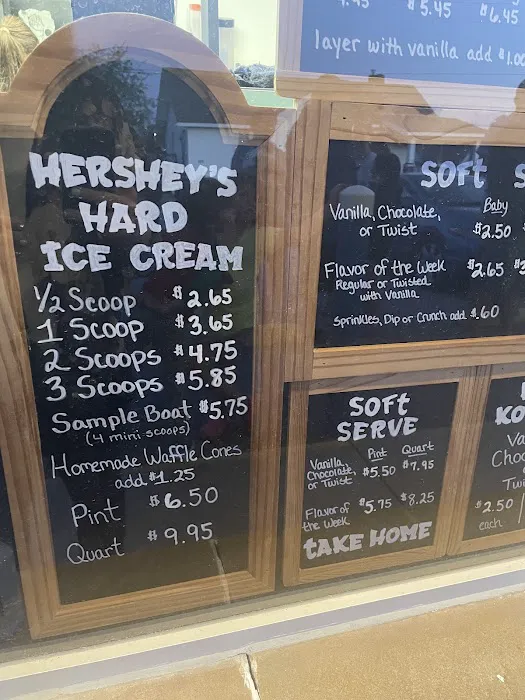 HERSHEY'S
HARD
ICE CREAM
1/2 Scoop $2.65
1 Scoop $3.65
2 Scoops $4.75
3 Scoops $5.85
Sample Boat $5.75
(4 mini-scoops)
Homemade Waffle Cones
add $1.25
Pint $6.50
Quart $9.95
$5.45 $6.45
layer with vanilla add $1.00
SOFT S
Baby
Vanilla, Chocolate,
or Twist $2.50
Flavor of the Week $2.65
Regular or Twisted
with Vanilla
Sprinkles, Dip or Crunch add $.60
SOFT
SERVE
Pint Quart
Vanilla,
Chocolate, $5.50 $7.95
or Twist
Flavor of $5.75 $8.25
the Week
TAKE HOME
KO
Va
Choc
Twi
$2.50
each